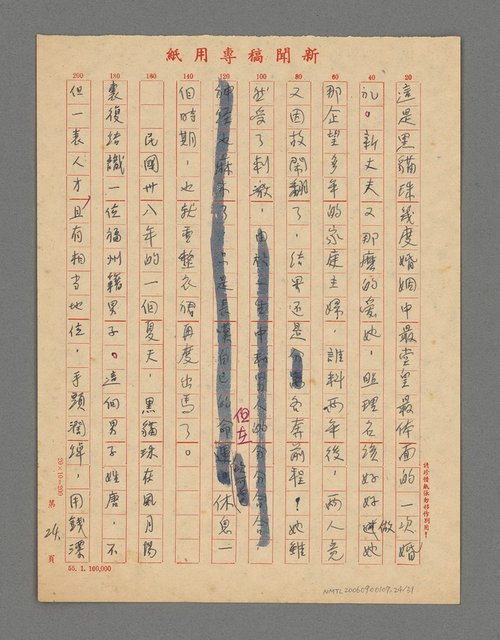 新聞稿專用紙
這是黑貓珠幾度婚姻中最堂皇最體面的一次婚
禮。新丈夫又那麼的愛她,照理名後好好做她
那企望多年的家庭主婦,誰料兩年後,兩人竟
又因故鬧翻了,結果還是各奔前程!她雖
然受了刺激,
但在休息一
個時期,也就重整衣裙再度出馬了。
民國卅八年的一個夏天,黑貓珠在風月場
裏復結識一位福州籍男子。這個男子姓唐,不
但一表人才且有相當地位,手頭潤綽,用錢深
20 40 60 80 100 120 140 160 180 200
請珍惜紙張勿移作別用!
20×10=200
第 24. 頁
55.1.100,000
NMTL20060900109.24/31